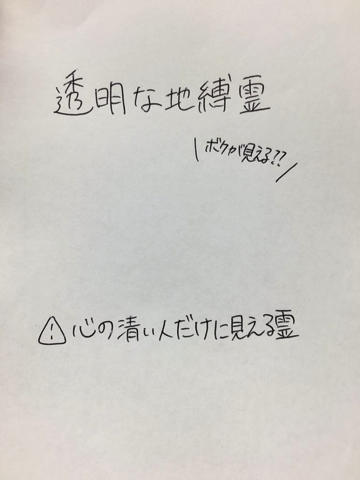 透明な地縛霊
\ボクが見える??/
⚠心の清い人だけに見える霊